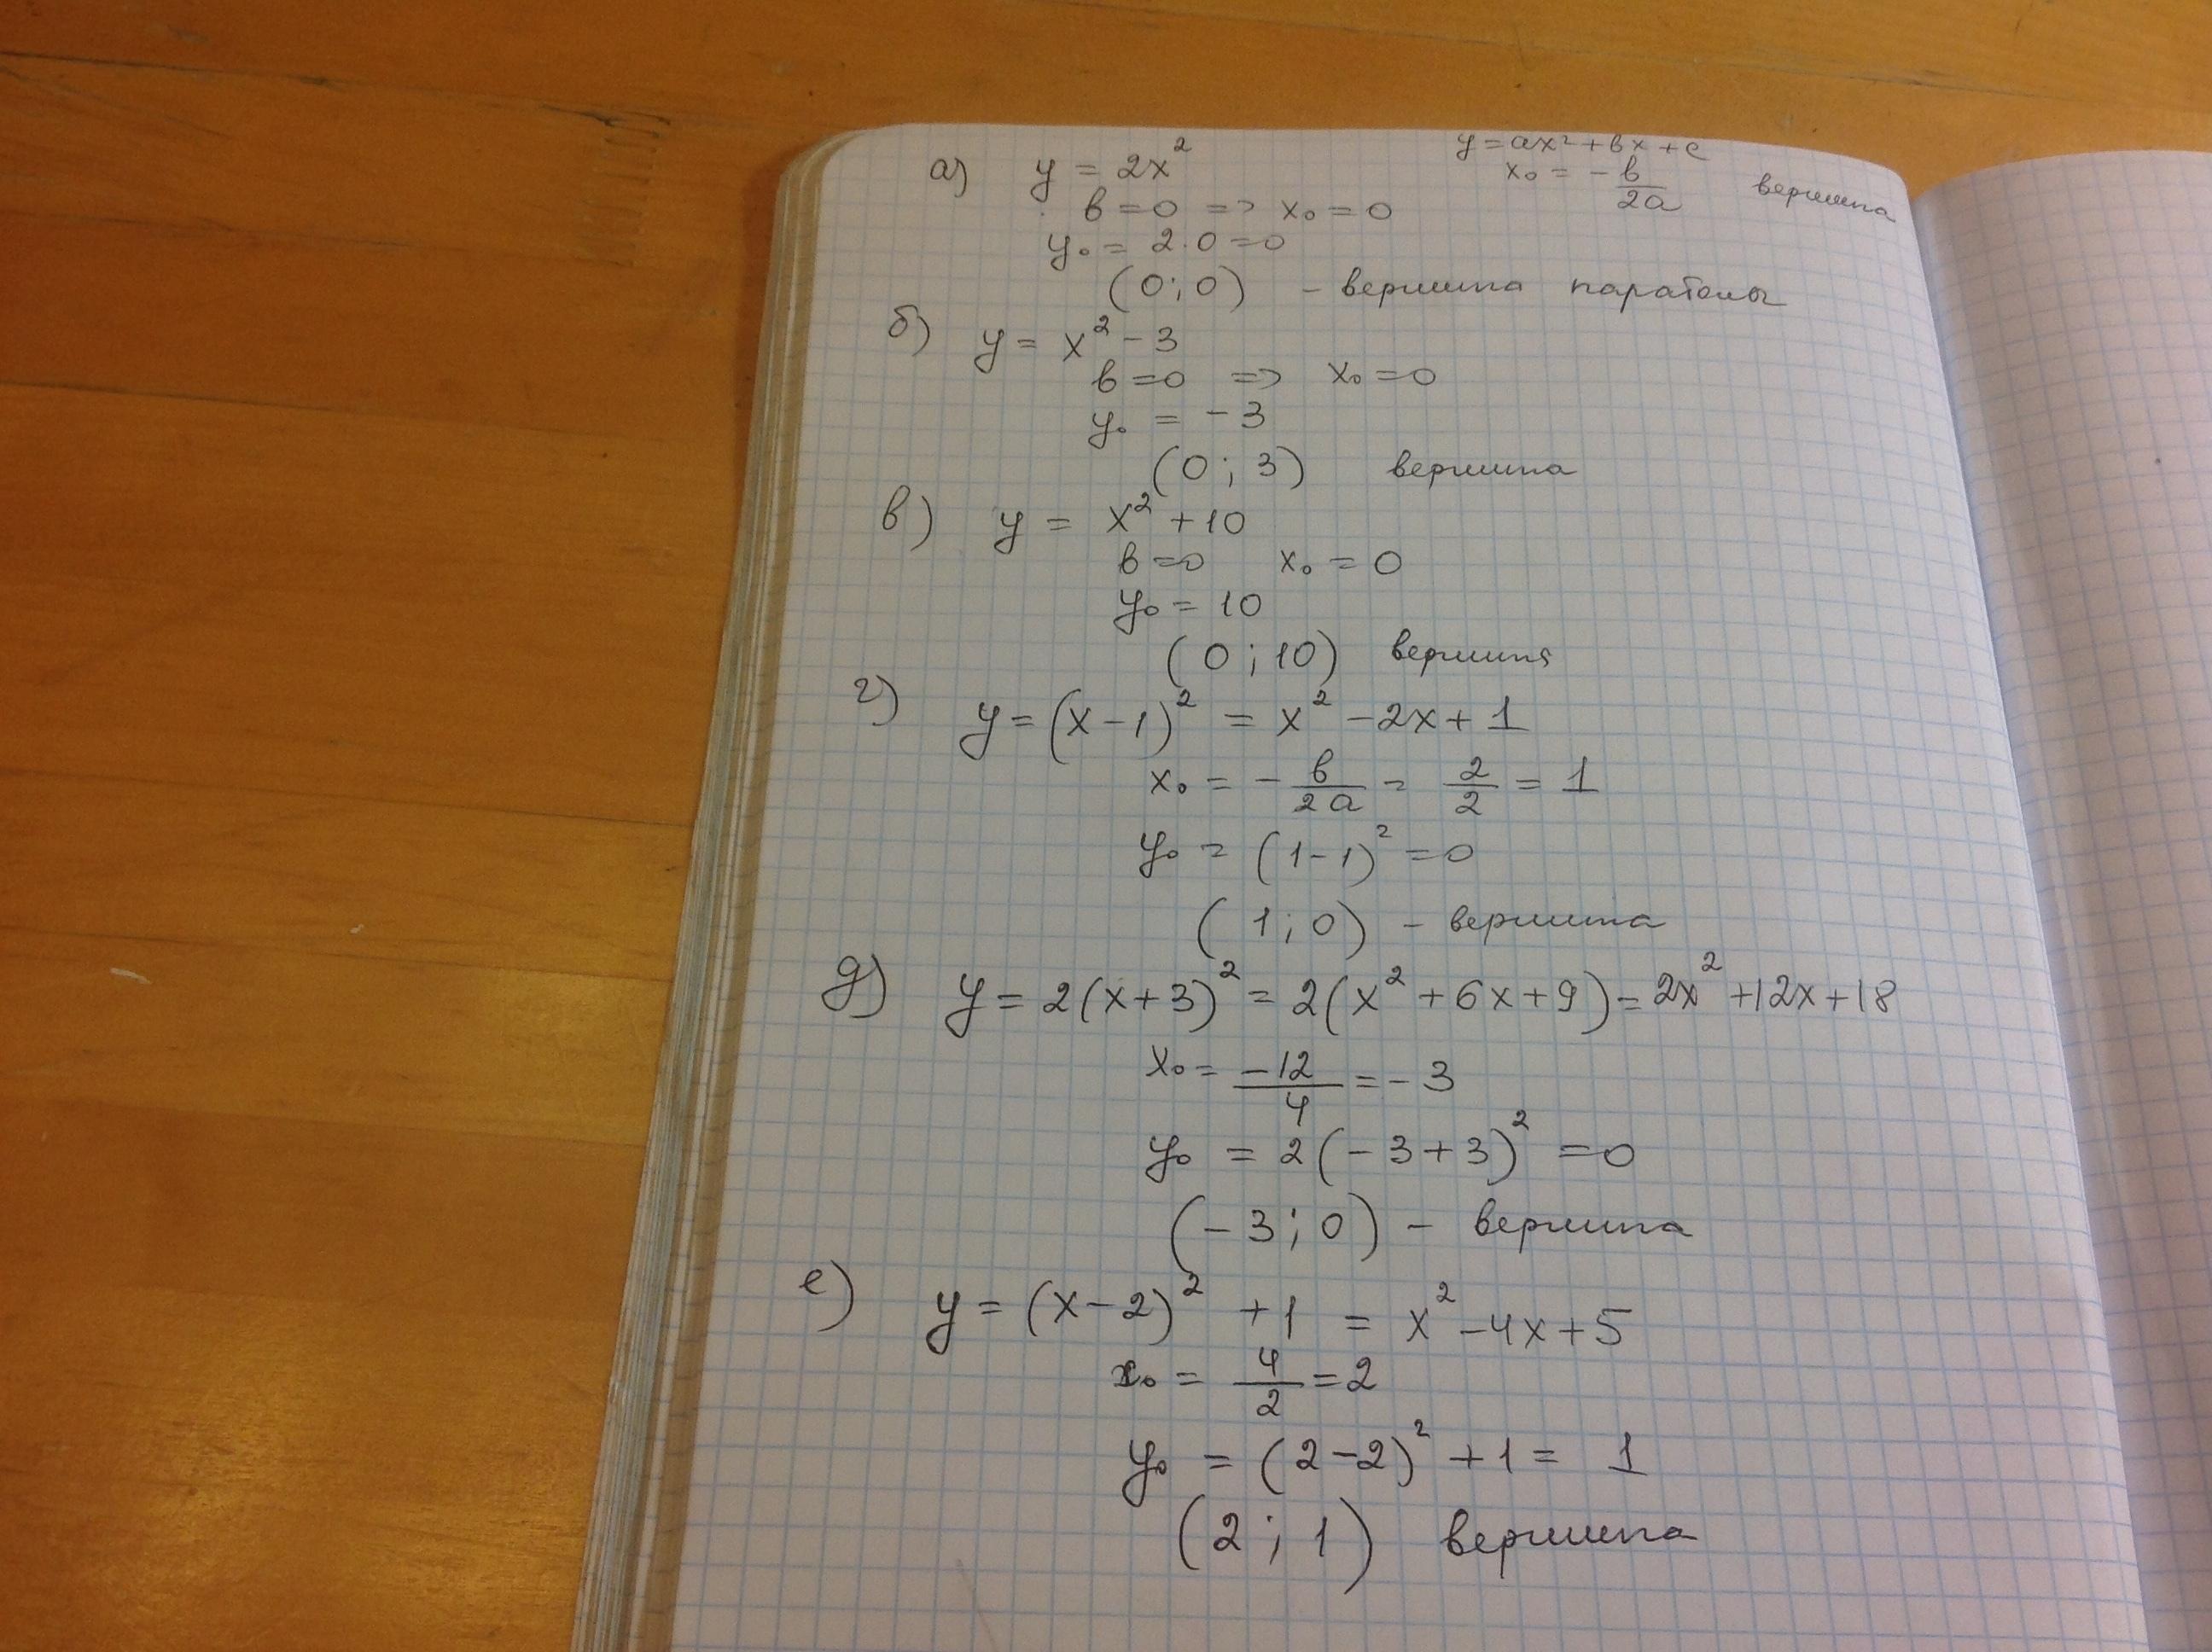 y = ax² + bx + c
x₀ = -b/2a вершина
а) y = 2x²
b = 0 => x₀ = 0
y₀ = 2·0 = 0
(0; 0) - вершина параболы
б) y = x² - 3
b = 0 => x₀ = 0
y₀ = -3
(0; 3) вершина
в) y = x² + 10
b = 0 x₀ = 0
y₀ = 10
(0; 10) вершина
г) y = (x-1)² = x² - 2x + 1
x₀ = -b/2a = 2/2 = 1
y₀ = (1-1)² = 0
(1; 0) - вершина
д) y = 2(x+3)² = 2(x² + 6x + 9) = 2x² + 12x + 18
x₀ = -12/4 = -3
y₀ = 2(-3+3)² = 0
(-3; 0) - вершина
е) y = (x-2)² + 1 = x² - 4x + 5
x₀ = 4/2 = 2
y₀ = (2-2)² + 1 = 1
(2; 1) вершина